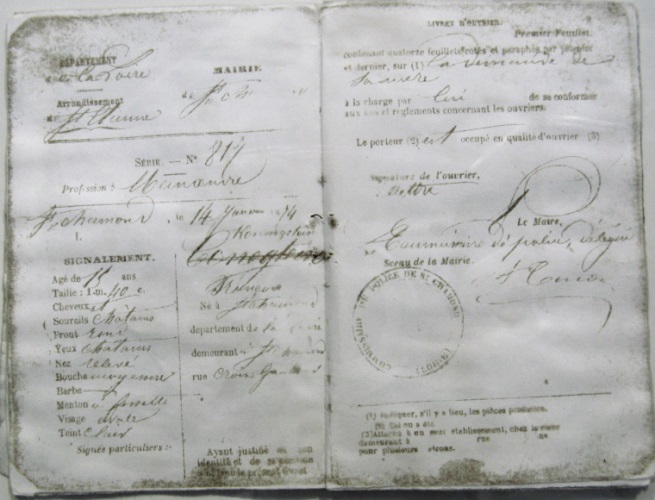 DÉPARTEMENT
de la Loire
Arrondissement
de St Etienne
MAIRIE
de St
SÉRIE. — N° 817
Profession : Manœuvre
St chamond, le 14 Janvier 1874
SIGNALEMENT.
Agé de 15 ans
Taille : 1 m. 40 c.
Cheveux
Sourcils châtains
Front rond
Yeux châtains
Nez relevé
Bouche moyenne
Barbe
Menton à fossette
Visage ovale
Teint clair
Signes particuliers :
François
Né à St chamond
département de la Loire
demeurant à St chamond
rue Croix
Ayant justifié de son
identité et de sa position
LIVRET D'OUVRIER.
Premier Feuillet.
contenant quatorze feuillets cotés et paraphés par premier
et dernier, sur (1) la demande de
sa mère
à la charge par lui de se conformer
aux lois et règlements concernant les ouvriers.
Le porteur (2) est occupé en qualité d'ouvrier (3)
Signature de l'ouvrier,
Le Maire,
Commissaire de police délégué
Sceau de la Mairie.
COMMISSAIRE DE POLICE DE ST CHAMOND (LOIRE)
(1) Indiquer, s'il y a lieu, les pièces produites.
(2) Est ou a été
(3) Attaché à un seul établissement, chez le sieur
demeurant à rue n°
pour plusieurs